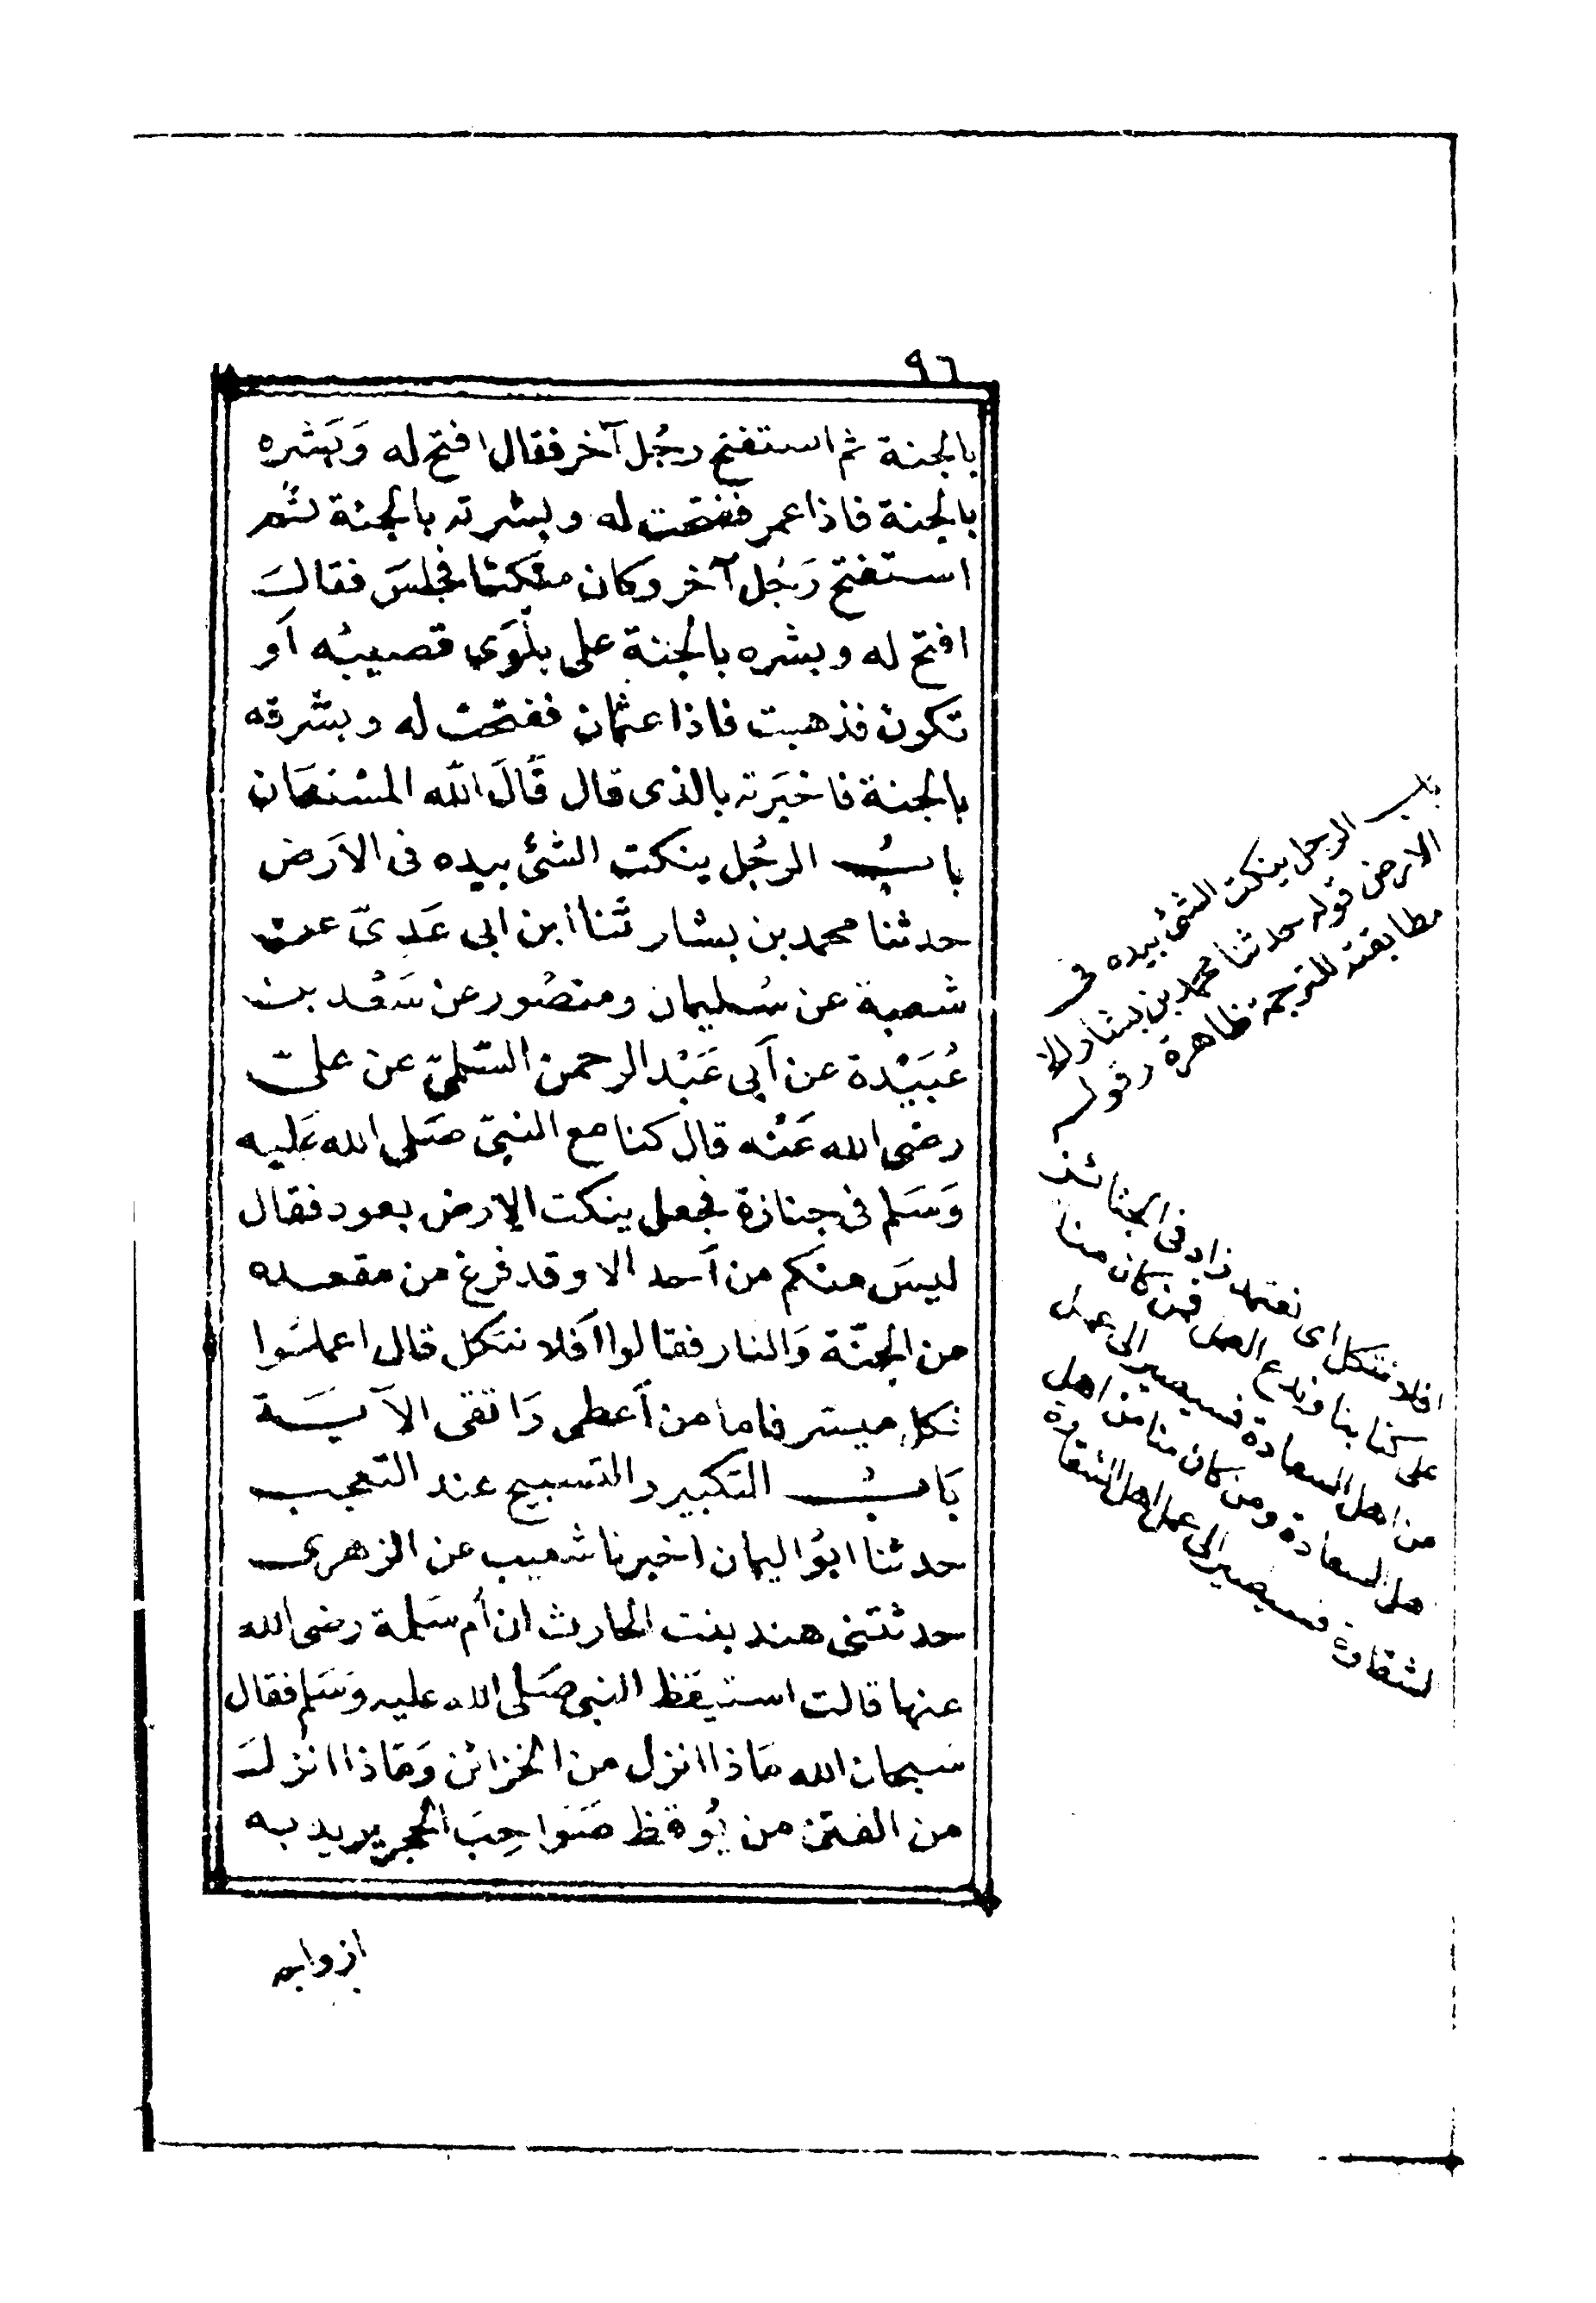 ٩٦
بالجنة ثم استفتح رجُل آخر فقال افتح له وَبَشره
بالجنة فاذا عمر ففتحت له وبشرته بالجنة ثم
استفتح رَجُل آخر وكان متكئا فجلسَ فقالَ
افتح له وبشره بالجنة على بلْوَى تصيبُه أو
تكون فذهبت فاذا عثمان ففتحت له وبشرته
بالجنة فاخبَرته بالذى قال قَالَ الله المسْتعَان
بابُ الرجُل ينكت الشئ بيده فى الاَرض
حدثنا محمد بن بشار ثنا ابن ابى عَدىّ عن
شعبة عن سُليمان ومنصُور عن سَعْد بن
عُبَيْدة عن أبى عَبْد الرحمن السّلمىّ عن علىّ
رضى الله عَنْه قال كنا مع النبىّ صَلى الله عَليه
وَسَلم فى جنازة فجعل ينكت الارض بعود فقال
ليسَ منكم من أحد الا وقد فرغ من مقعده
من الجنّة وَالنار فقالوا أفلا نتكل قال اعملوا
فكل ميسر فاما من أعطى وَاتقى الآيَة
بَابُ التكبير والتسبيح عند التعجب
حدثنا ابوُ اليمان اخبرنا شعيب عن الزهرى
حدثتنى هند بنت الحارث ان أم سَلمة رضى الله
عنها قالت استيقظ النبى صَلى الله عليه وَسَلم فقال
سبحان الله مَاذا انزل من الخزائن وَمَاذا انُزلَ
من الفتن من يُوقظ صَوَاحِبَ الحجر يريد به
ازواجه
باب الرجل ينكت الشئ بيده فى
الارض قوله حدثنا محمد بن بشار الخ
مطابقته للترجمة ظاهرة وقوله
افلا نتكل اى نعتمد زاد فى الجنائز
على كتابنا وندع العمل فمن كان منا
من اهل السعادة فسيصير الى عمل
اهل السعادة ومن كان منا من اهل
الشقاوة فسيصير الى عمل اهل الشقاوة